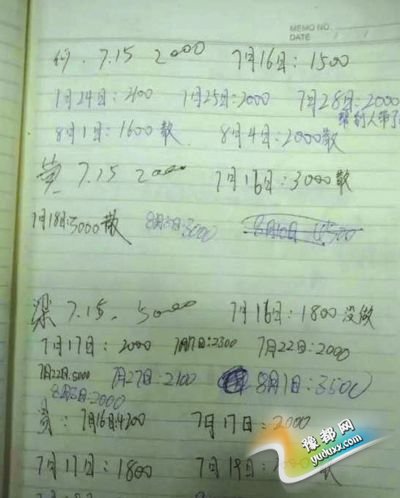 MEMO NO.
DATE / /
何. 7.15 2000 7月16日: 1500
7月24日: 2100 7月25日: 2000 7月28日: 2000
帮别人带了
8月1日: 1600 散 8月4日: 2000 散
黄 7.15 2000 7月16日: 3000 散
7月18日: 5000 散 8月3日: 3000 8月6日
梁 7.15. 5000 7月16日: 1800 没做
7月17日: 2000 7月17日: 2300 7月22日: 2000
7月22日: 5000 7月27日: 2100 8月1日: 3500
8月3日: 2000
7月16日: 4200 7月17日: 2000
7月17日: 1800 7月19日:
豫都网
yuduxx.com